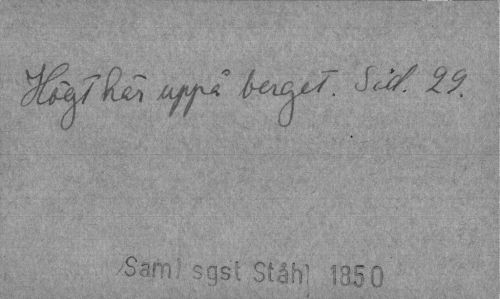 Högt här uppå berget. Sid. 29.
Saml sgst Ståhl 1850